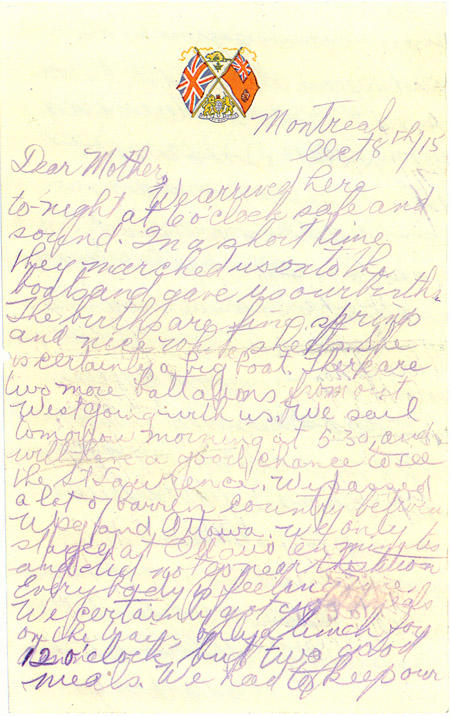 Montreal
Oct 8th/15
Dear Mother,
We arrived here
to-night at 6 o'clock safe and
sound. In a short time
they marched us onto the
boat and gave us our births.
The births are fine, springs
and nice white sheets. She
is certainly a big boat. There are
two more battalions from out
West going with us. We sail
tomorrow morning at 5.30 and
will have a good chance to see
the St Lawrence. We passed
a lot of barren county between
Wpg and Ottawa. We only
stayed at Ottawa ten minutes
and did not go near the station
Every body is feeling fine.
We certainly got good meals
on the train, only a lunch for
12 o'clock, but two good
meals. We had to keep our